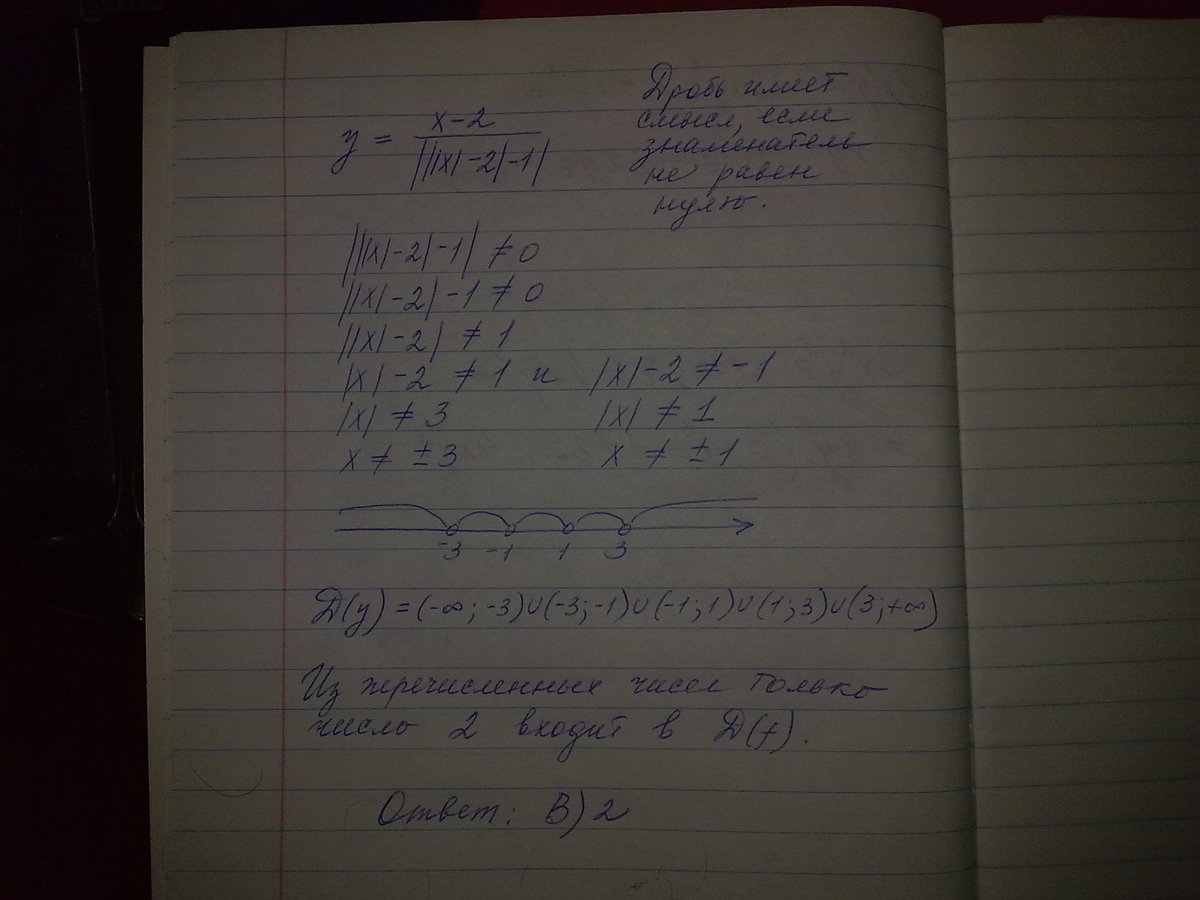 y = x-2 / |||x|-2|-1|
Дробь имеет
смысл, если
знаменатель
не равен
нулю.
|||x|-2|-1| ≠ 0
||x|-2|-1 ≠ 0
||x|-2| ≠ 1
|x|-2 ≠ 1 и |x|-2 ≠ -1
|x| ≠ 3 |x| ≠ 1
x ≠ ±3 x ≠ ±1
-3 -1 1 3
D(y) = (-∞; -3)∪(-3; -1)∪(-1; 1)∪(1; 3)∪(3; +∞)
Из перечисленных чисел только
число 2 входит в D(f).
Ответ: B) 2